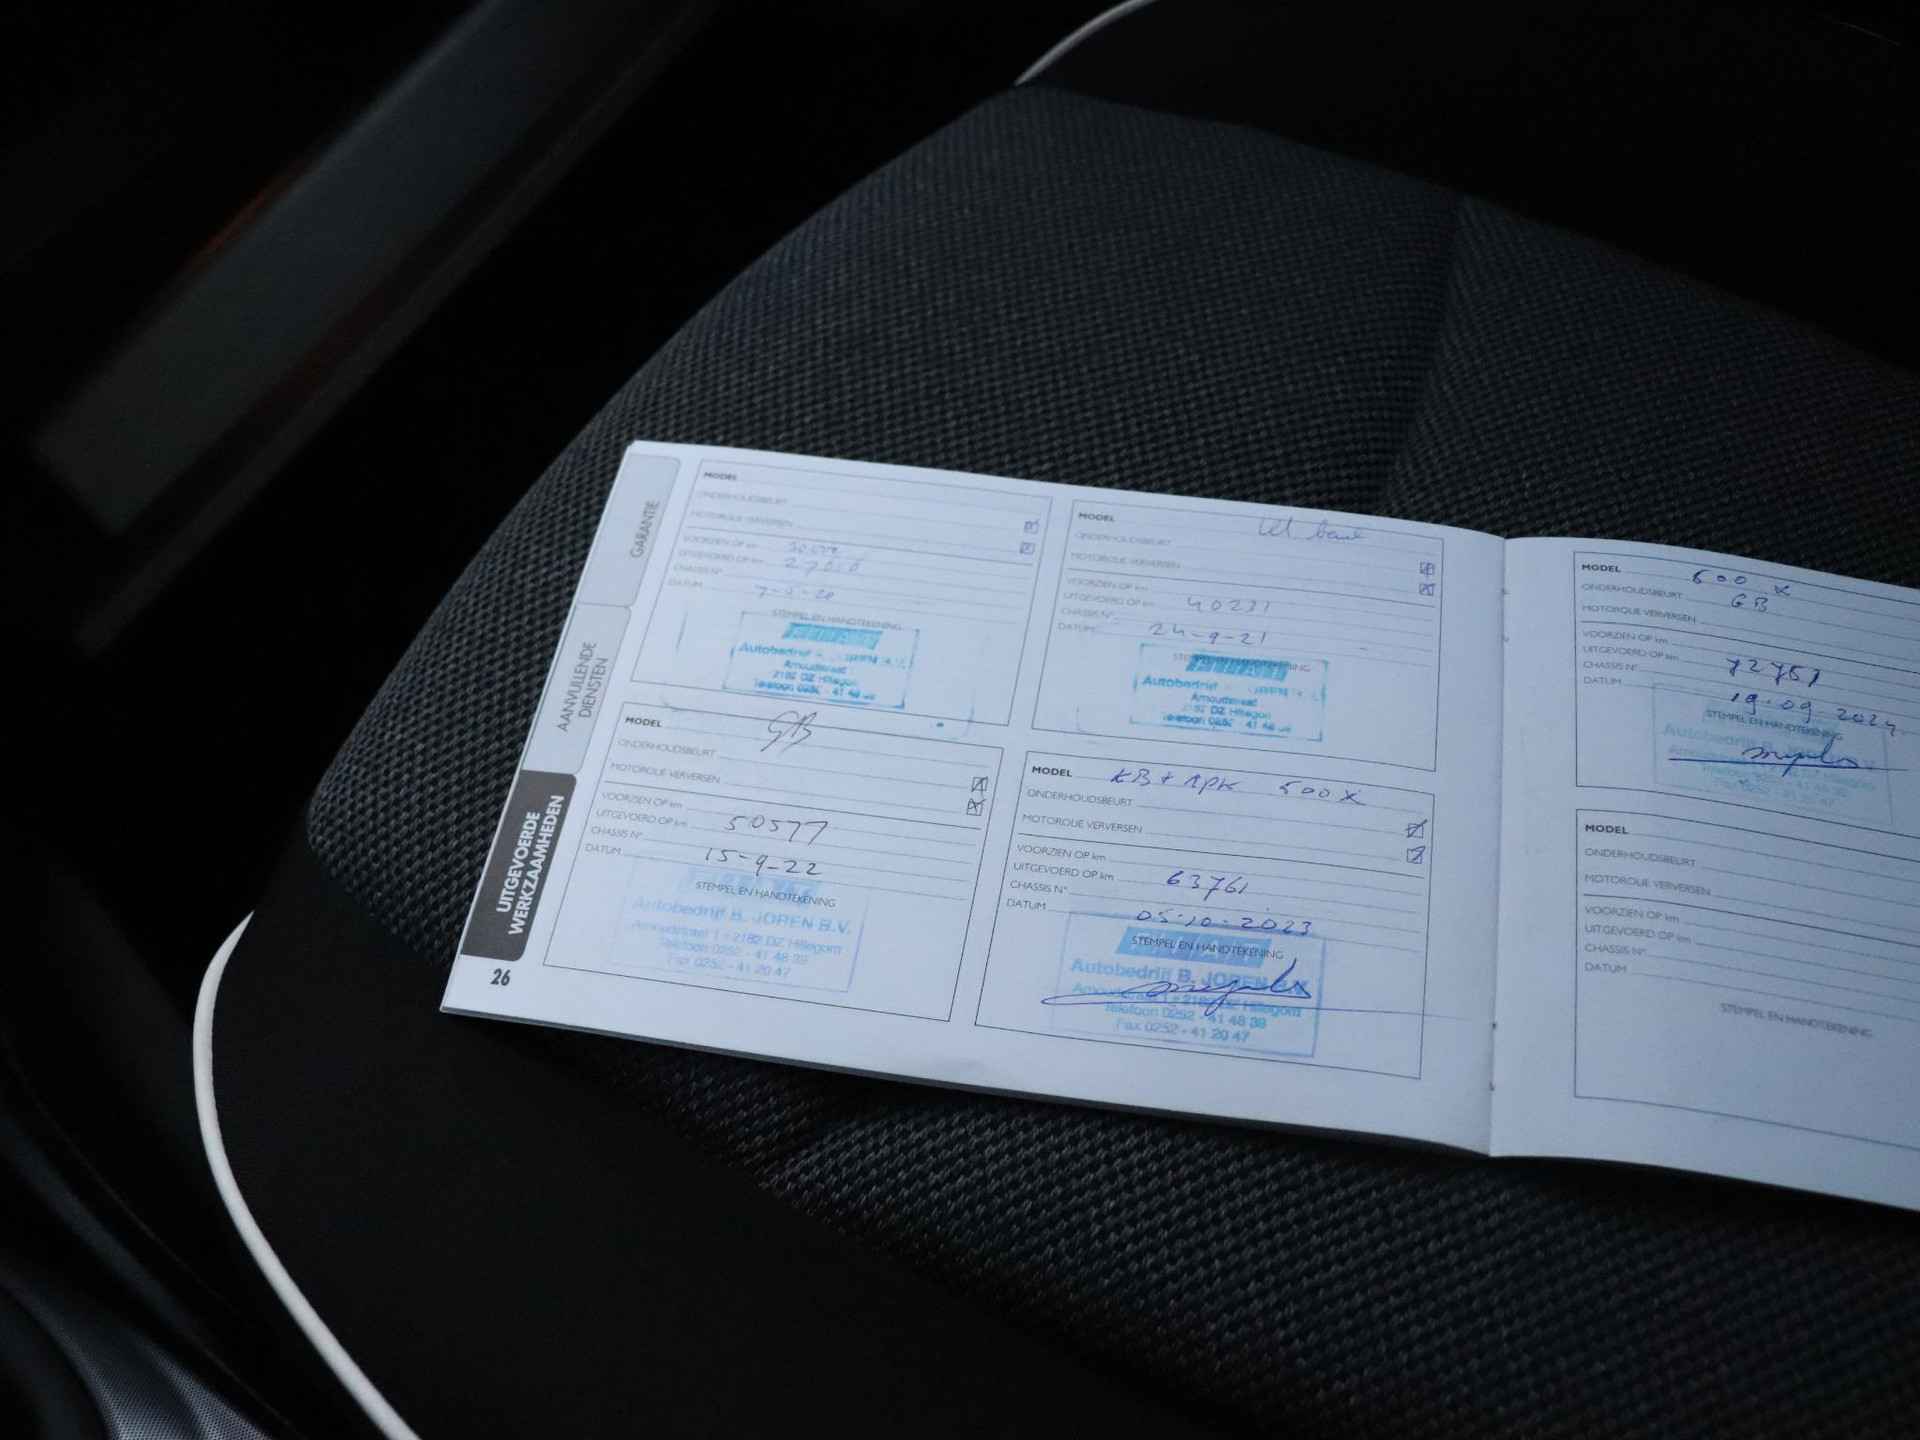 GARANTIE
AANVULLENDE
DIENSTEN
UITGEVOERDE
WERKZAAMHEDEN
26
MODEL
ONDERHOUDSBEURT
MOTOROLIE VERVERSEN
VOORZIEN OP km
UITGEVOERD OP km
CHASSIS N°
DATUM
STEMPEL EN HANDTEKENING
Autobedrijf
2182 DZ Hillegom
Telefoon 0252 - 41 48
MODEL
ONDERHOUDSBEURT
MOTOROLIE VERVERSEN
VOORZIEN OP km
UITGEVOERD OP km 40231
CHASSIS N°
DATUM 24-9-21
Autobedrijf
2182 DZ Hillegom
Telefoon 0252 - 41 48
MODEL GB
ONDERHOUDSBEURT
MOTOROLIE VERVERSEN
VOORZIEN OP km
UITGEVOERD OP km 50577
CHASSIS N°
DATUM 15-9-22
STEMPEL EN HANDTEKENING
Autobedrijf B. JOREN B.V.
2182 DZ Hillegom
Telefoon 0252 - 41 48 39
Fax 0252 - 41 20 47
MODEL 500 X
ONDERHOUDSBEURT
MOTOROLIE VERVERSEN
VOORZIEN OP km
UITGEVOERD OP km 63761
CHASSIS N°
DATUM 05-10-2023
STEMPEL EN HANDTEKENING
Autobedrijf B. JOREN
2182 DZ Hillegom
Telefoon 0252 - 41 48 39
Fax 0252 - 41 20 47
MODEL 500 X
ONDERHOUDSBEURT GB
MOTOROLIE VERVERSEN
VOORZIEN OP km
UITGEVOERD OP km 72751
CHASSIS N°
DATUM 19-09-2024
STEMPEL EN HANDTEKENING
Autobedrijf B.
MODEL
ONDERHOUDSBEURT
MOTOROLIE VERVERSEN
VOORZIEN OP km
UITGEVOERD OP km
CHASSIS N°
DATUM
STEMPEL EN HANDTEKENING